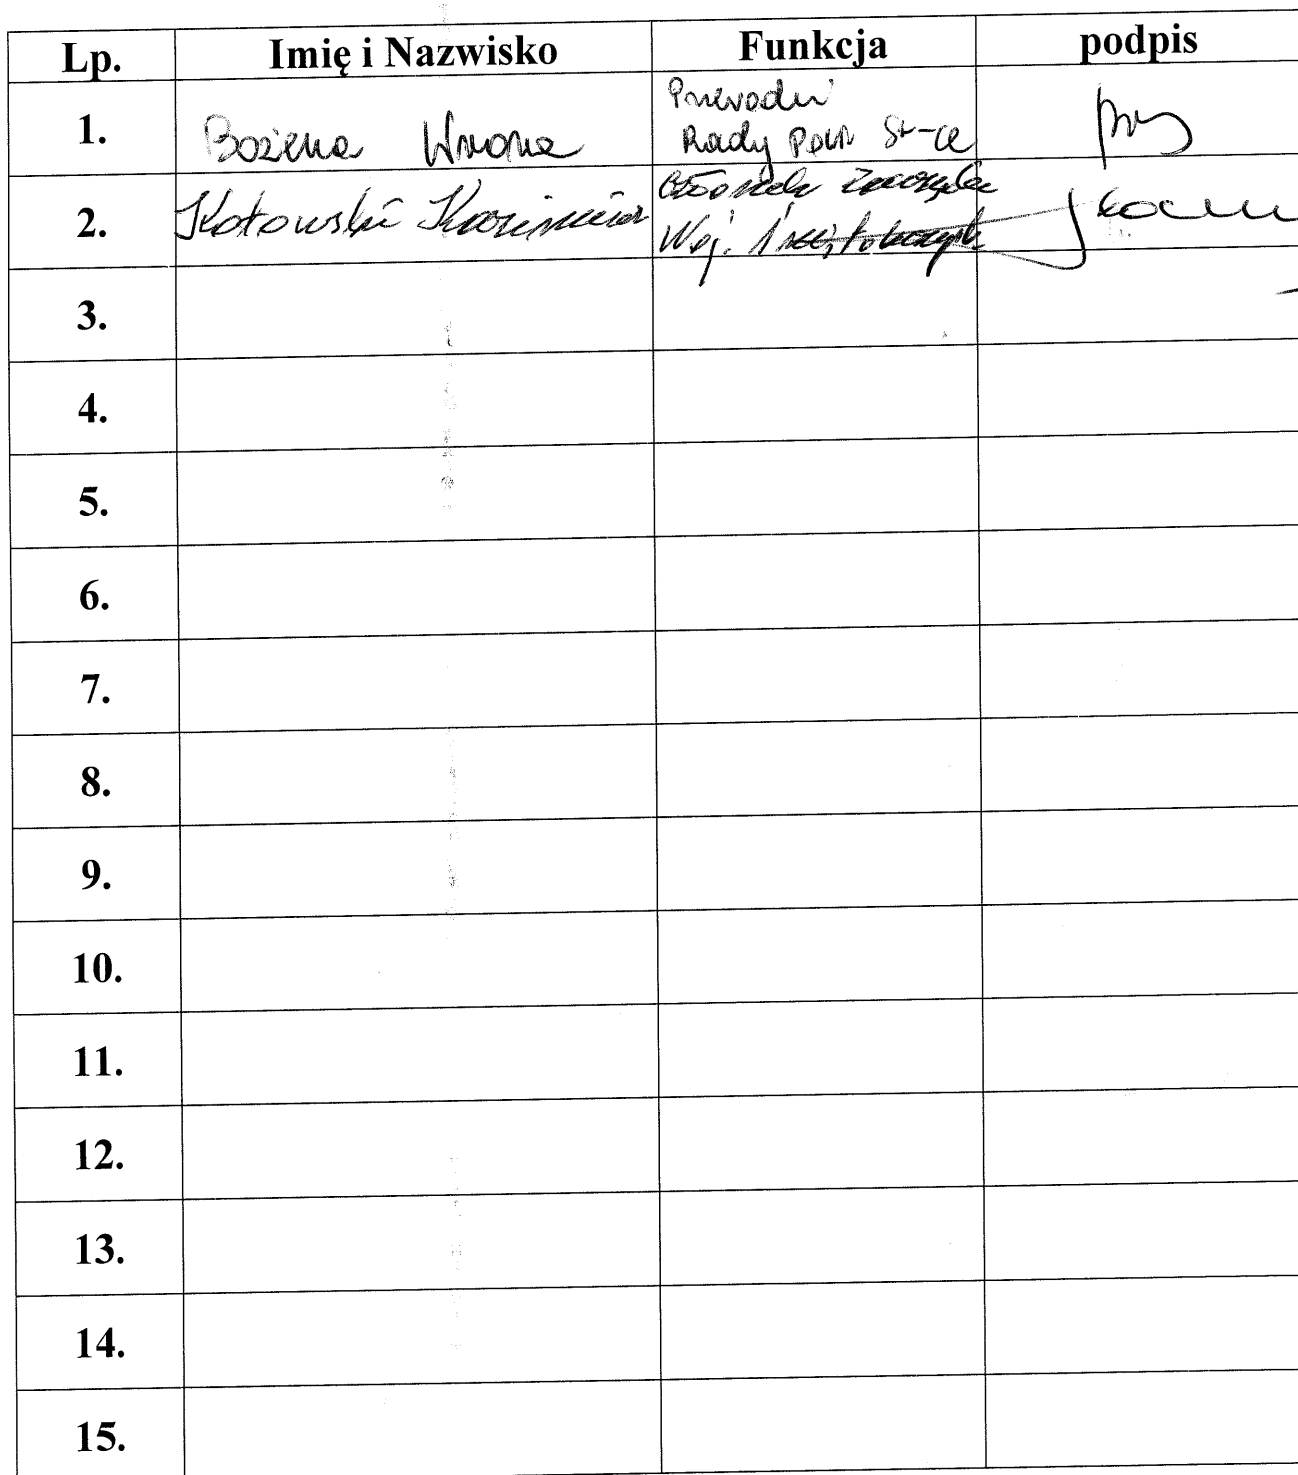 Lp. Imię i Nazwisko Funkcja podpis
1. Bożena Wrona Przewodn
Rady Pow St-ce
2. Kotowski Kazimierz Członek Zarządu
Woj. Świętokrzysk
3.
4.
5.
6.
7.
8.
9.
10.
11.
12.
13.
14.
15.